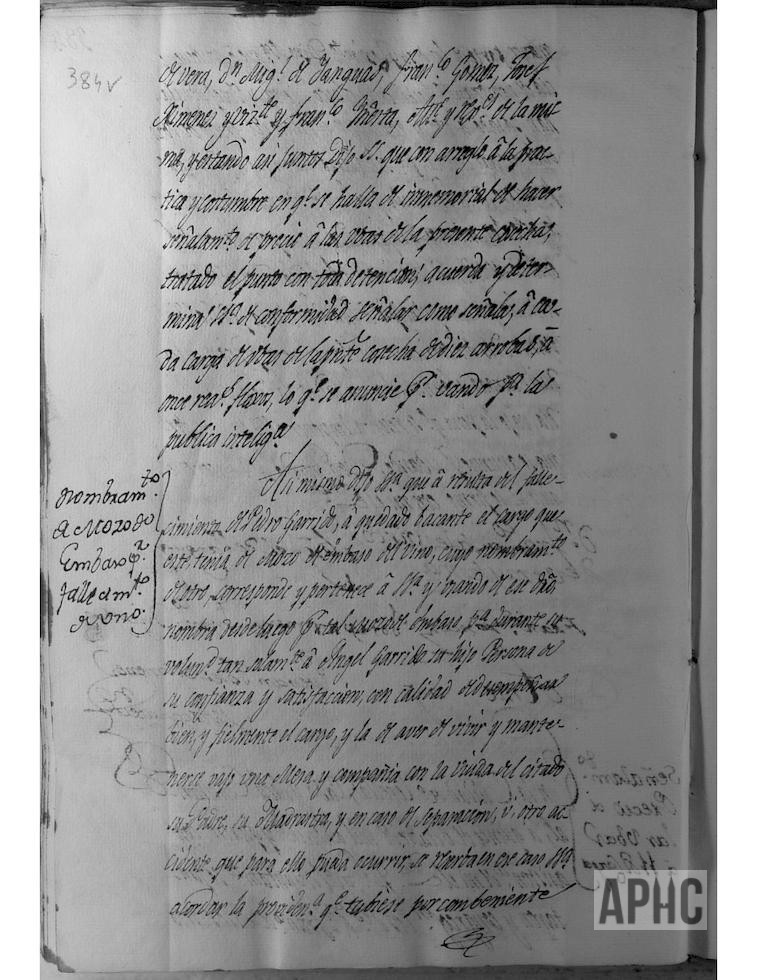 384v
de vera, Dn. Migl. de Yanguas, Franco. Gomez, Josef
Ximenez y Vizte. y Franco. Huerta, Alle. y de la mis-
ma, y estando asi juntos Dijo S.S. que con arreglo â la prac-
tica y costumbre en qe. se halla de inmemorial de hacer
señalamto. de precio â las Ubas de la presente cosecha,
tratado el punto con toda detencion, acuerda y deter-
mina de conformidad señalar como señala, â ca-
da carga de Ubas de la prste. cosecha de diez arrobas, â
once reas. flojos, lo qe. se anuncie pr. vando pa. la
publica inteliga.
Nombramto.
de Mozo de
Embaso pr.
fallecimto.
de uno.
Asi mismo Dijo Sa. que â resulta del falle-
cimiento de Pedro Garrido, â quedado bacante el cargo que
este tenia de Mozo de embaso del Vino, cuyo nombramto.
de otro, corresponde y pertenece â Sa. y usando de ese dro.
nombra desde luego pr. tal Mozo de embaso, pa. durante su
volund. tan solamte. â Angel Garrido su hijo Persona de
su confianza y satisfaccion, con calidad de desempeñar
bien, y fielmente el cargo, y la de aver de vivir y mante-
nerse vajo una Mesa y compañia con la Viuda del citado
su Padre, su Madrastra, y en caso de separacion, û otro ac-
cidente que para ello pueda ocurrir, se reserva en ese caso Sa.
acordar la providena. qe. tubiese por combeniente
APHC